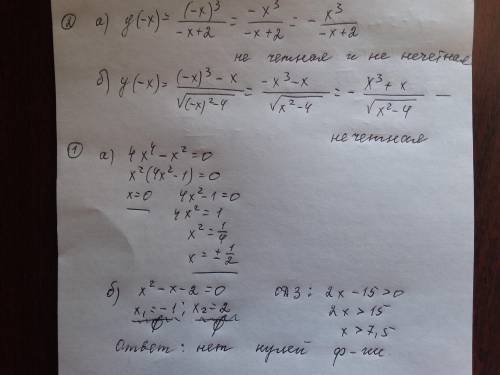 ② а) y(-x) = (-x)³/(-x+2) = -x³/(-x+2) = - x³/(-x+2)
не четная и не нечетная
б) y(-x) = ((-x)³ - x)/√((-x)² - 4) = (-x³ - x)/√(x² - 4) = - (x³ + x)/√(x² - 4) —
нечетная
① а) 4x⁴ - x² = 0
x²(4x² - 1) = 0
x = 0 4x² - 1 = 0
4x² = 1
x² = 1/4
x = ± 1/2
б) x² - x - 2 = 0 ОДЗ: 2x - 15 > 0
x₁ = -1; x₂ = 2 2x > 15
∅ ∅ x > 7,5
Ответ: нет нулей ф-ии